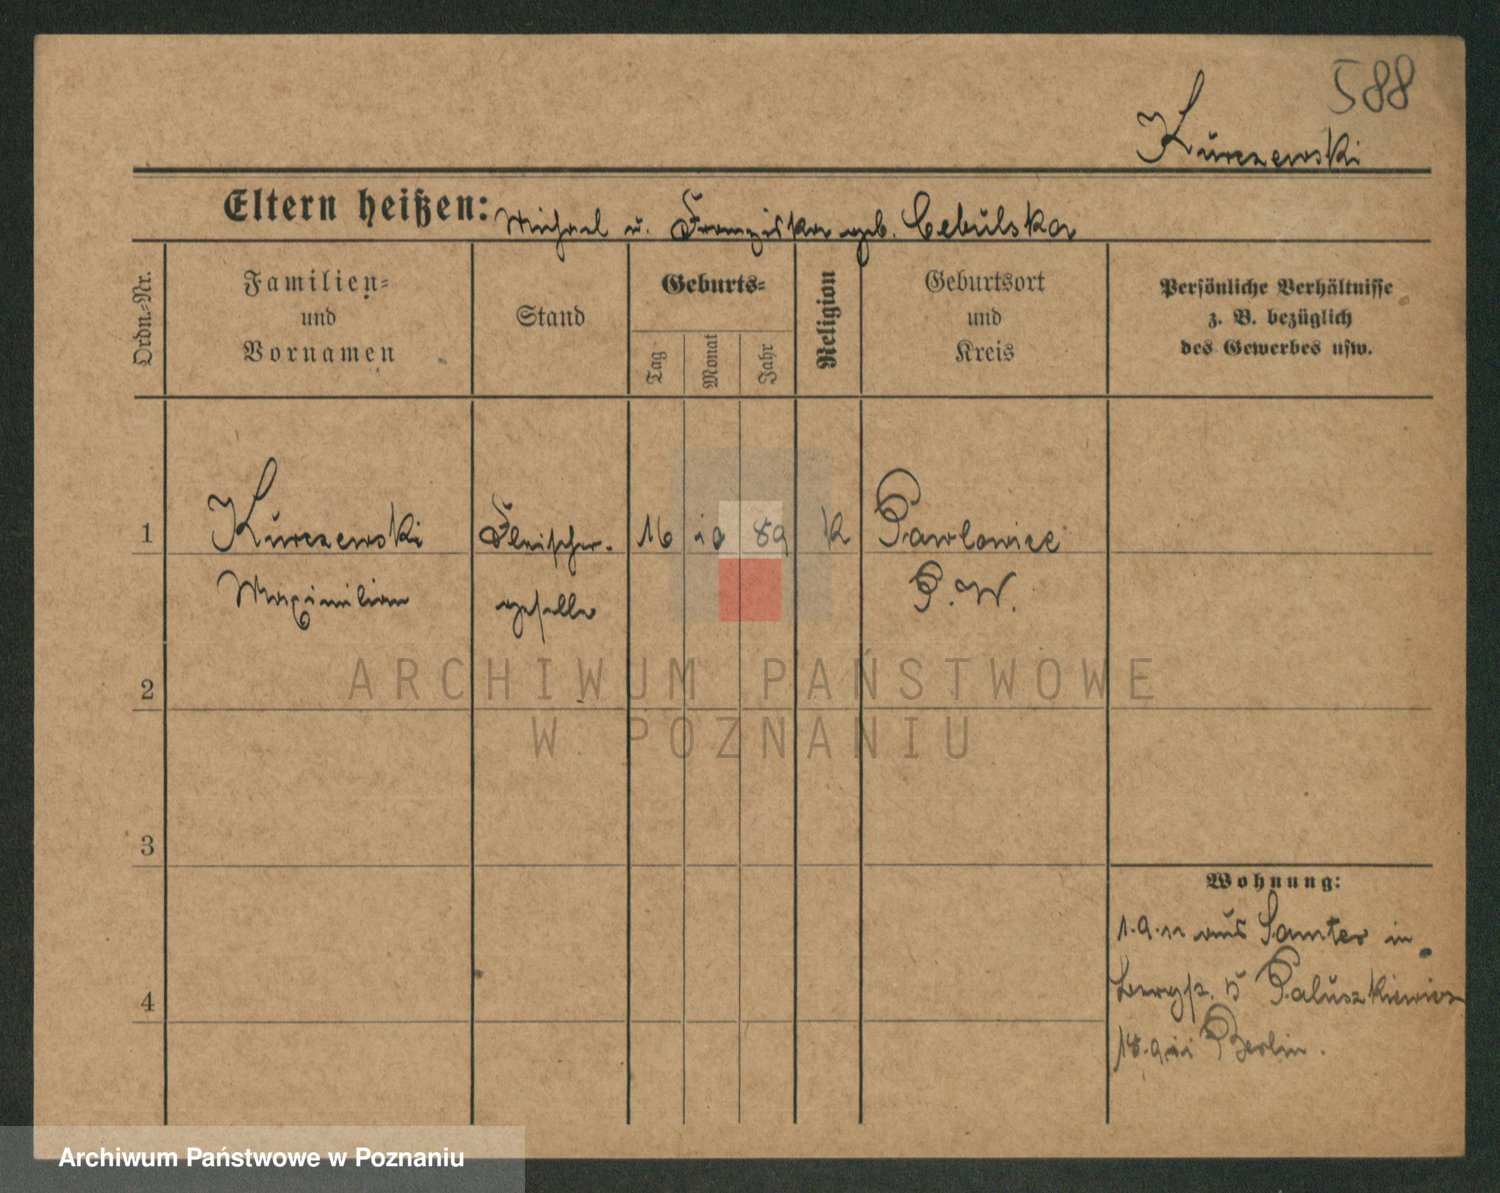 588
Kurczewski
Eltern heißen: Michael u. Franziska geb. Cebulska
Ordn.-Nr.
Familien-
und
Vornamen
Stand
Geburts-
Tag
Monat
Jahr
Religion
Geburtsort
und
Kreis
Persönliche Verhältnisse
z. B. bezüglich
des Gewerbes usw.
1 Kurczewski Fleischer- 16 10 89 k Pawlowice
Maximilian geselle P. W.
2
3
4
Wohnung:
1.9.11 aus Samter in
Bergstr. 5 Paluszkiewicz
18.9.11 Berlin.
ARCHIWUM PAŃSTWOWE
W POZNANIU
Archiwum Państwowe w Poznaniu